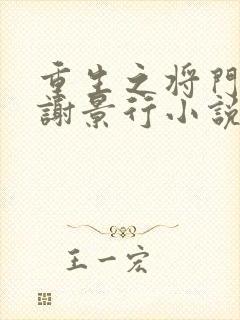 重生之将門
謝景行小説
王一宏